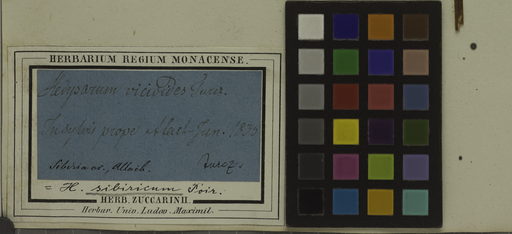 HERBARIUM REGIUM MONACENSE.
Hedysarum vicioides Turcz.
In sylvis prope Atlach-Jun. 1835
Sibiria or., Atlach. Turcz.
= H. sibiricum Poir.
HERB. ZUCCARINII.
Herbar. Univ. Ludov. Maximil.